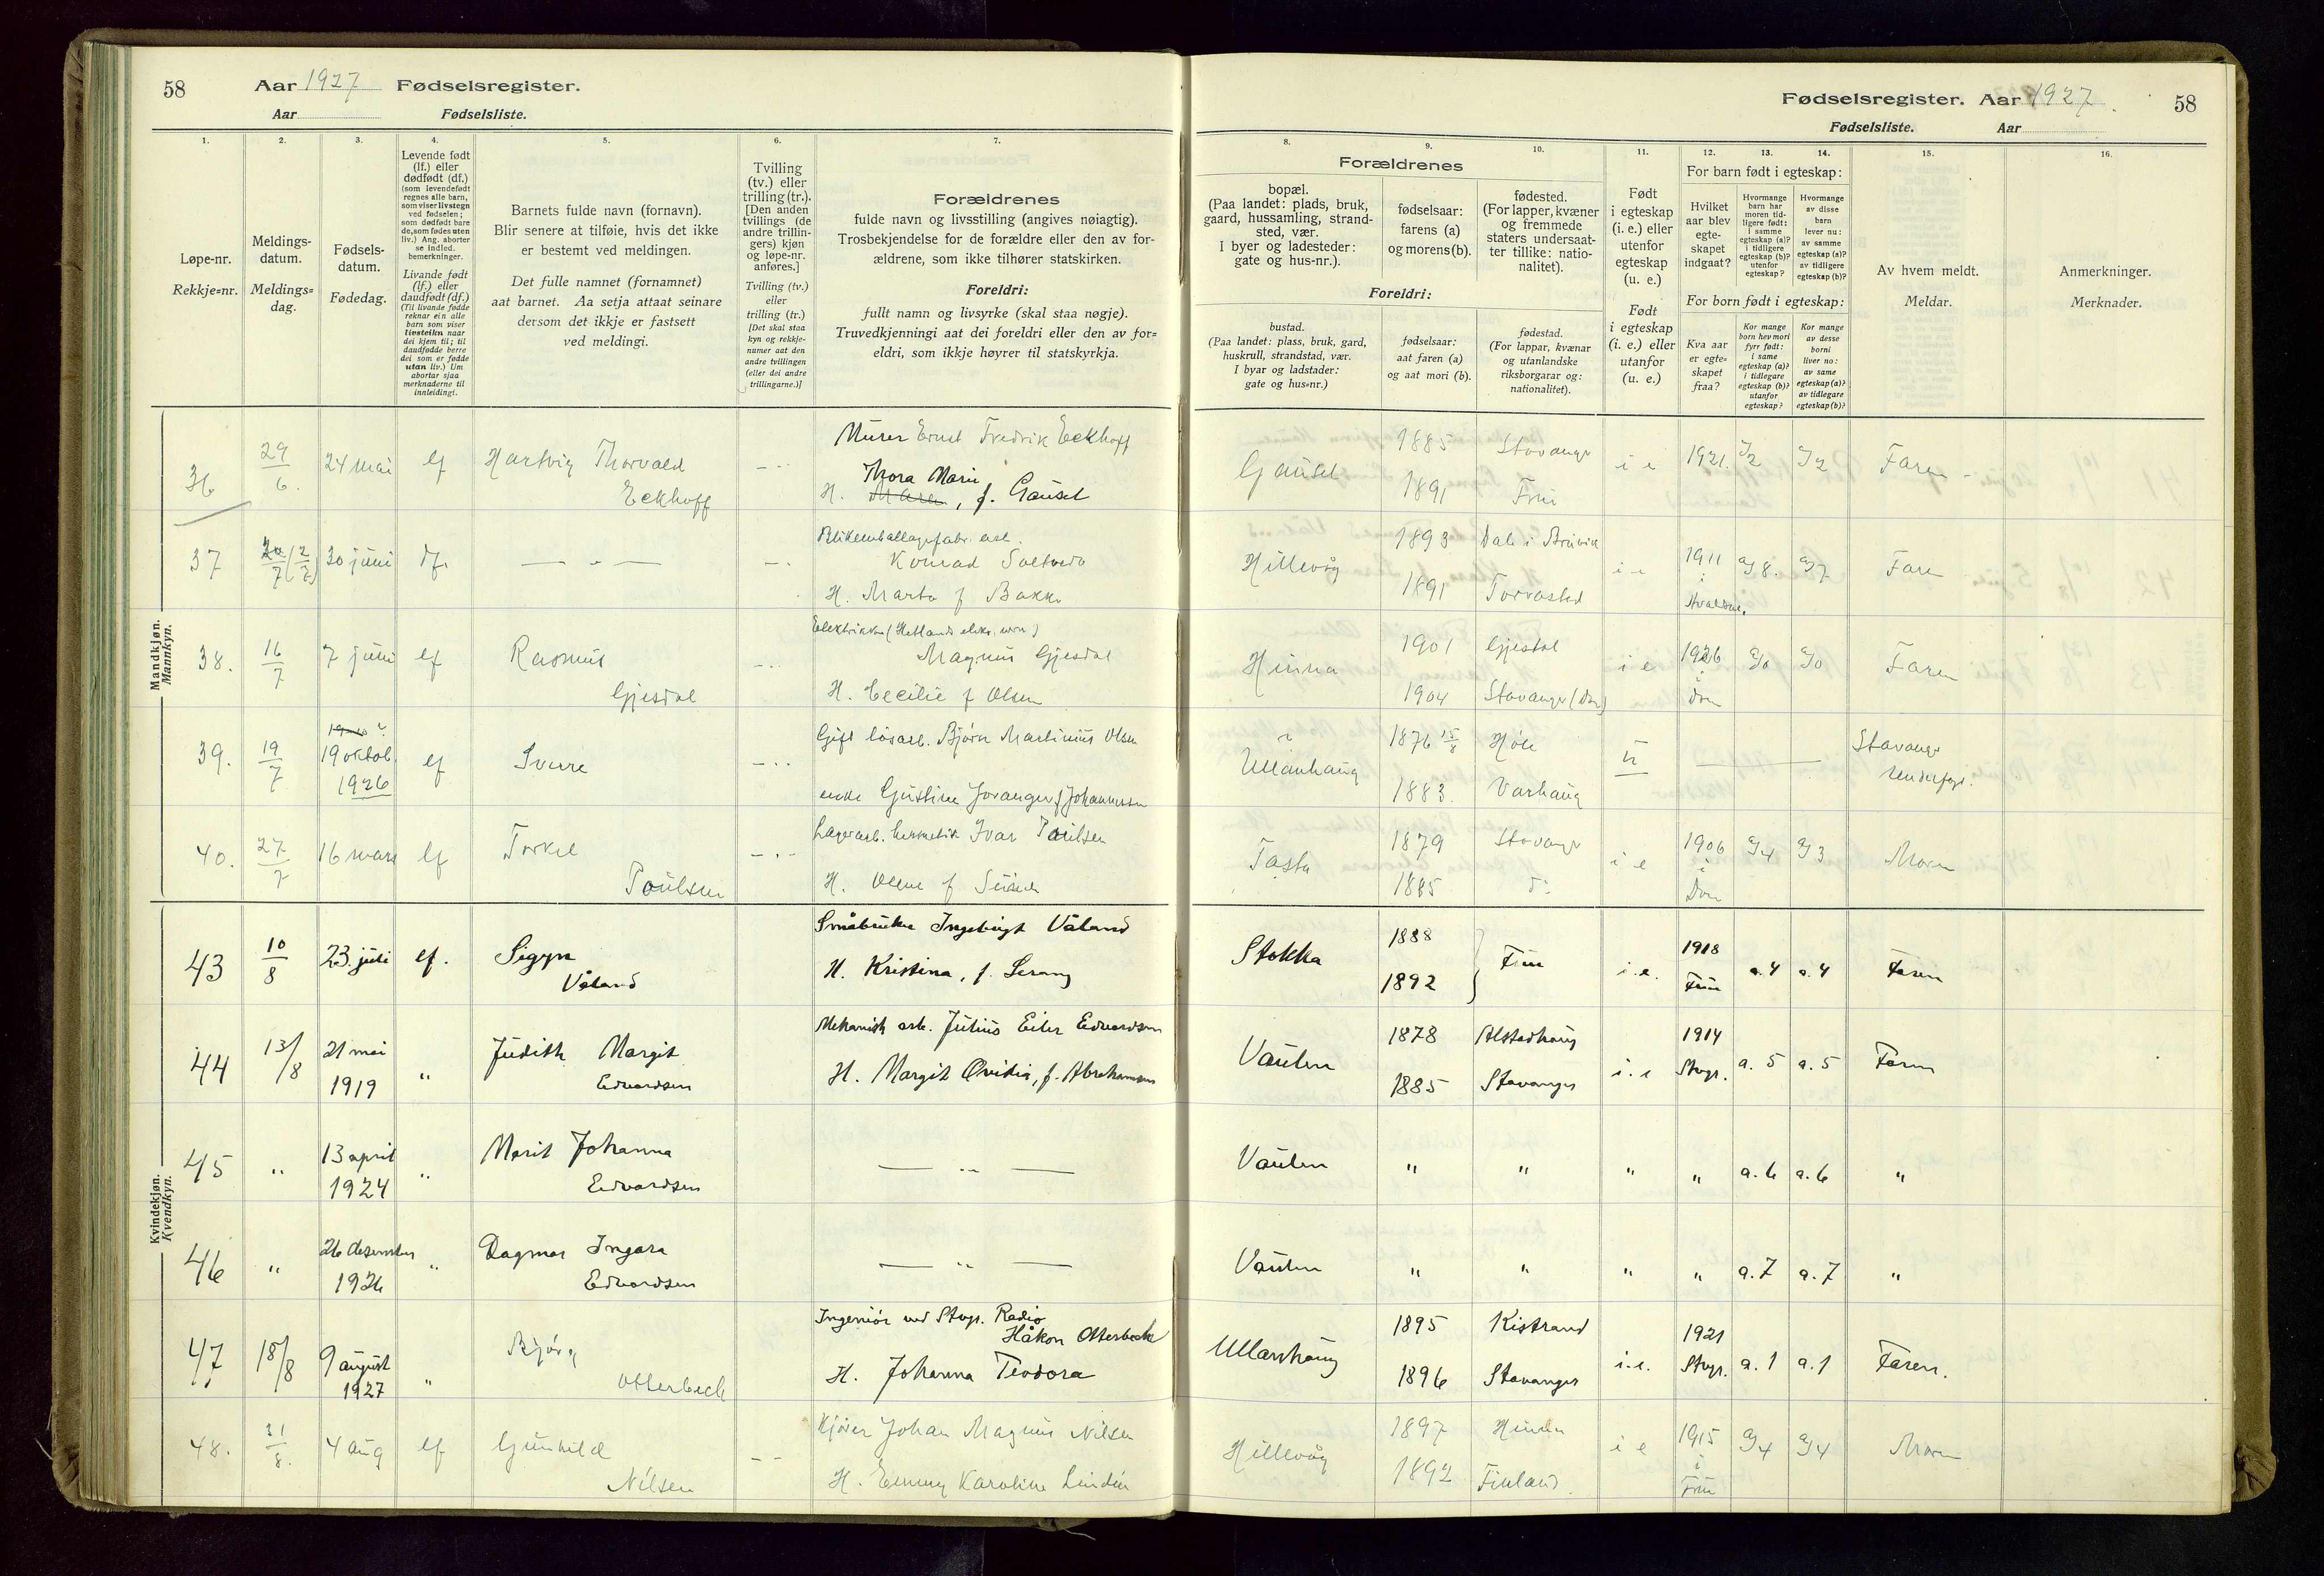 58 Aar 1927 Fødselsregister.
Aar Fødselsliste.
1. 2. 3. 4. 5. 6. 7.
Løpe-nr.
Rekkje=nr.
Meldings-
datum.
Meldings=
dag.
Fødsels-
datum.
Fødedag.
Levende født
(lf.) eller
dødfødt (df.)
(som levendefødt
regnes alle barn,
som viser livstegn
ved fødselen;
som dødfødt bare
de, som fødes uten
liv.) Ang. aborter
se indled.
bemerkninger.
Livande født
(lf.) eller
daudfødt (df.)
(Til livande fødde
reknar ein alle
barn som viser
livsteikn naar
dei kjem til; til
daudfødde berre
dei som er fødde
utan liv.) Um
abortar sjaa
merknaderne til
innleidingi.
Barnets fulde navn (fornavn).
Blir senere at tilføie, hvis det ikke
er bestemt ved meldingen.
Det fulle namnet (fornamnet)
aat barnet. Aa setja attaat seinare
dersom det ikkje er fastsett
ved meldingi.
Tvilling
(tv.) eller
trilling (tr.).
[Den anden
tvillings (de
andre trillin-
gers) kjøn
og løpe-nr.
anføres.]
Tvilling (tv.)
eller
trilling (tr.)
[Det skal staa
kyn og rekkje-
numer aat den
andre tvillingen
(eller dei andre
trillingarne.)]
Forældrenes
fulde navn og livsstilling (angives nøiagtig).
Trosbekjendelse for de forældre eller den av for-
ældrene, som ikke tilhører statskirken.
Foreldri:
fullt namn og livsyrke (skal staa nøgje).
Truvedkjenningi aat dei foreldri eller den av for=
eldri, som ikkje høyrer til statskyrkja.
Mandkjøn.
Mannkyn.
36 29/6. 24 mai lf Hartvig Thorvald
Eckhoff
Murer Ernst Fredrik Eckhoff
Thora Marie
H. , f. Gausel
37 30 juni df.
Konrad
H. Marta f Bakke
38. 16/7 7 juni lf Rasmus
Gjesdal
Magnus Gjesdal
H. Cecilie f Olsen
39. 19/7 19 oktob.
1926
lf Sverre
Gift løsarb. Bjørn Martinius Olsen
40. 27/7 16 mars lf Torkel
Poulsen
Ivar Poulsen
H. Olene f
Kvindekjøn.
Kvendkyn.
43 10/8 23. juli lf. Sigyn
Våland
Småbruker Ingebrigt Våland
H. Kristina, f.
44 13/8 21 mai
1919
" Judith Margit
Edvardsen
Mekanisk arb. Julius Eiler Edvardsen
H. Margit Ovidia, f. Abrahamsen
45 " 13 april
1924
" Marit Johanna
Edvardsen
— " —
46 " 26 desember
1926
" Dagmar Ingara
Edvardsen
— " —
47 18/8 9 august
1927
" Bjørg
Otterbech
Ingeniør ved Stvgr. Radio
Håkon Otterbech
H. Johanna Teodora
48. 31/8. 4 aug lf Gunhild
Nilsen
Johan Magnus Nilsen
H. Emmy Karoline Lindén
Fødselsregister. Aar 1927. 58
Fødselsliste. Aar
8. 9. 10. 11. 12. 13. 14. 15. 16.
Forældrenes
bopæl.
(Paa landet: plads, bruk,
gaard, hussamling, strand-
sted, vær.
I byer og ladesteder:
gate og hus-nr.).
fødselsaar:
farens (a)
og morens (b).
fødested.
(For lapper, kvæner
og fremmede
staters undersaat-
ter tillike: natio-
nalitet).
Foreldri:
bustad.
(Paa landet: plass, bruk, gard,
huskrull, strandstad, vær.
I byar og ladstader:
gate og hus=nr.)
fødselsaar:
aat faren (a)
og aat mori (b).
fødestad.
(For lappar, kvænar
og utanlandske
riksborgarar og:
nationalitet).
Født
i egteskap
(i. e.) eller
utenfor
egteskap
(u. e.)
Født
i egteskap
(i. e.) eller
utanfor
(u. e.)
For barn født i egteskap:
Hvilket
aar blev
egte-
skapet
indgaat?
Hvormange
barn har
moren tid-
ligere født:
i samme
egteskap (a)?
i tidligere
egteskap (b)?
utenfor
egteskap?
Hvormange
av disse
barn
lever nu:
av samme
egteskap (a)?
av tidligere
egteskap (b)?
For born født i egteskap:
Kva aar
er egte=
skapet
fraa?
Kor mange
born hev mori
fyrr født:
i same
egteskap (a)?
i tidlegare
egteskap (b)?
utanfor
egteskap?
Kor mange
av desse
borni
liver no:
av same
egteskap (a)?
av tidlegare
egteskap (b)?
Av hvem meldt.
Meldar.
Anmerkninger.
Merknader.
Gausel 1885 Stavanger i e 1921. a/2 a/2 Faren
1891 Frue
Hillevåg 1893 i e 1911 a/8. a/7 Faren
1891 Torvastad
Hinna 1901 Gjestal i e 1926 a/0 a/0 Faren
1904 Stavanger (Dom)
i
Ullanhaug 1876 15/8 Høle u Stavanger
1883. Varhaug
Tasta 1879 Stavanger i e 1906 a/4 a/3 Moren
1885 d:
i
Dom
Stokka 1888 Frue i.e. 1918 a.4 a.4 Faren
1892 Frue
Vaulen 1878 Alstadhaug i.e 1914 a. 5 a. 5 Faren
1885 Stavanger Stvgr.
Vaulen " " " " a. 6 a. 6 "
Vaulen " " " " a. 7 a. 7 "
Ullanhaug 1895 Kistrand i.e. 1921 a. 1 a. 1 Faren.
1896 Stavanger Stvgr.
Hillevåg 1897 i e 1915 a/4 a/4 Moren
1892 Finland.
i
Frue